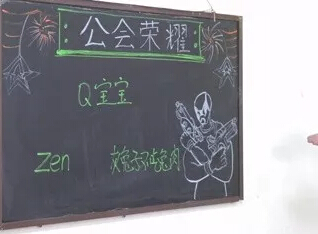 公会荣耀
Q宝宝
Zen
兔子不吃兔肉